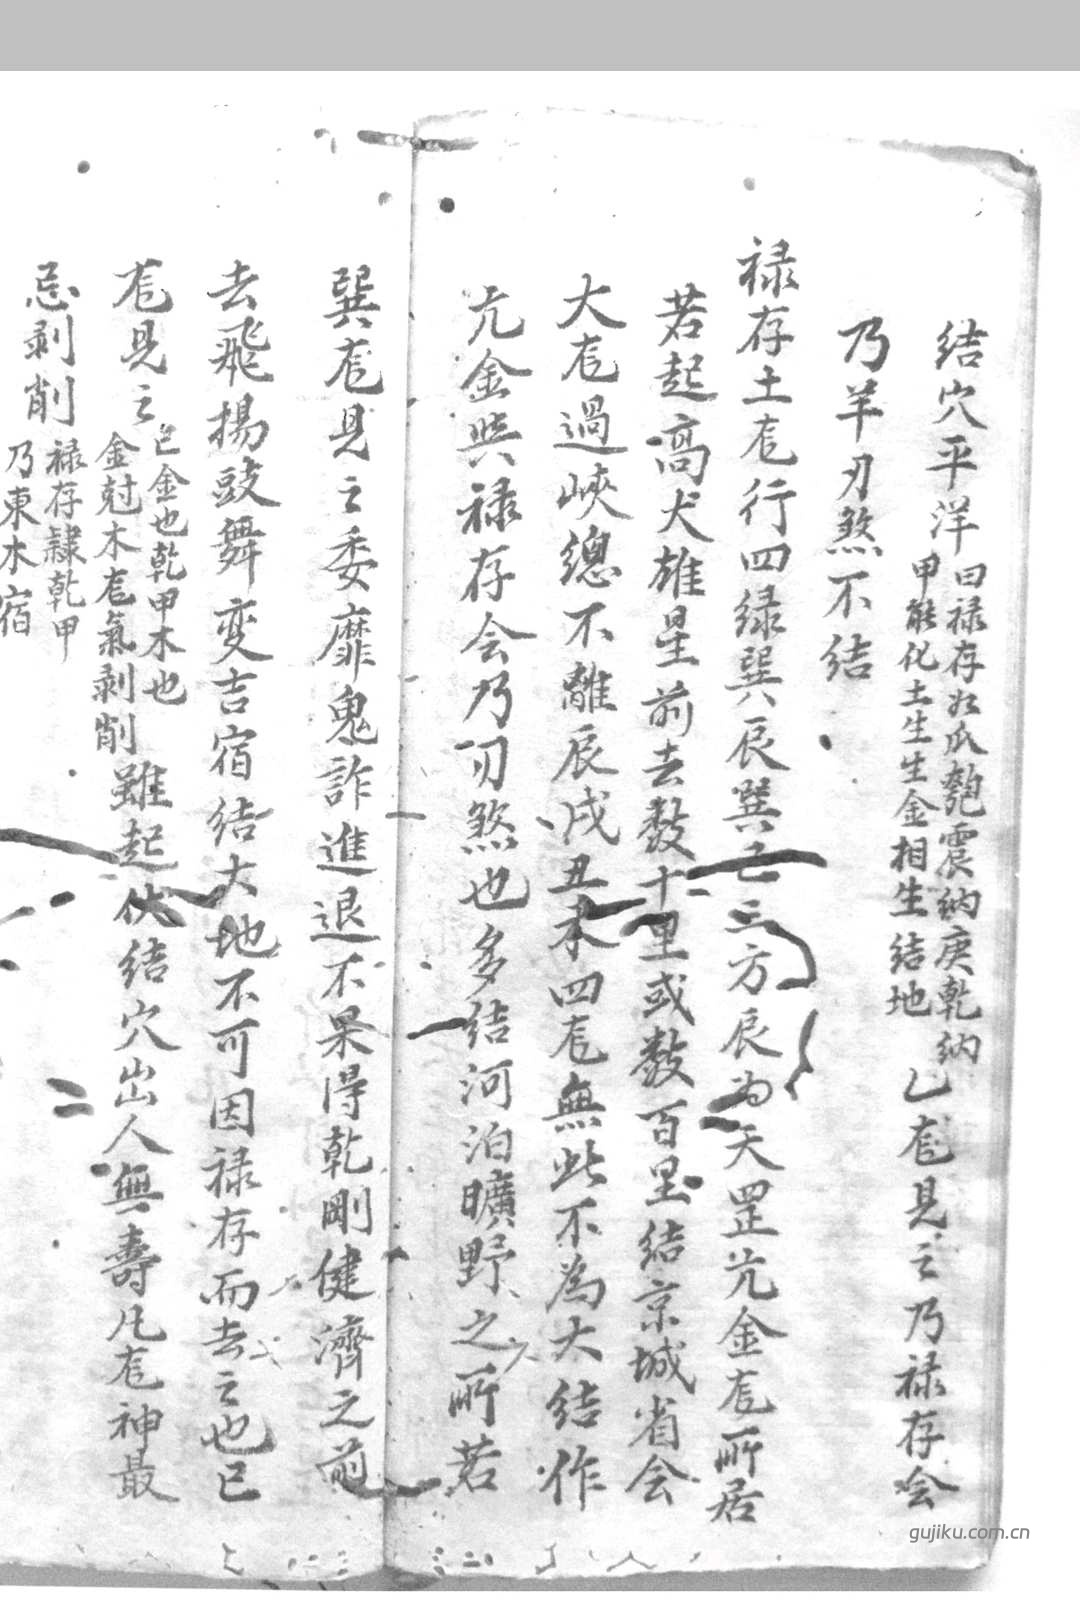 结穴平洋曰禄存如瓜匏震納庚乾納甲能化土生生金相生结地乙㡳見之乃禄存会
乃羊刃煞不结
禄存土㡳行四绿巽辰巽巳三方辰為天罡亢金㡳所居
若起高大雄星前去数十里或数百里结京城省会
大㡳過峽總不離辰戌丑未四㡳無此不為大结作
亢金與禄存会乃刃煞也多结河泊曠野之所若
巽㡳見之委靡鬼詐進退不果得乾剛健濟之前
去飛揚鼓舞変吉宿结大地不可因禄存而去之也巳
㡳見之巳金也乾甲木也金尅木㡳氣剥削雖起伏结穴出人無壽凡㡳神最
忌剥削禄存隸乾甲乃東木宿
gujiku.com.cn